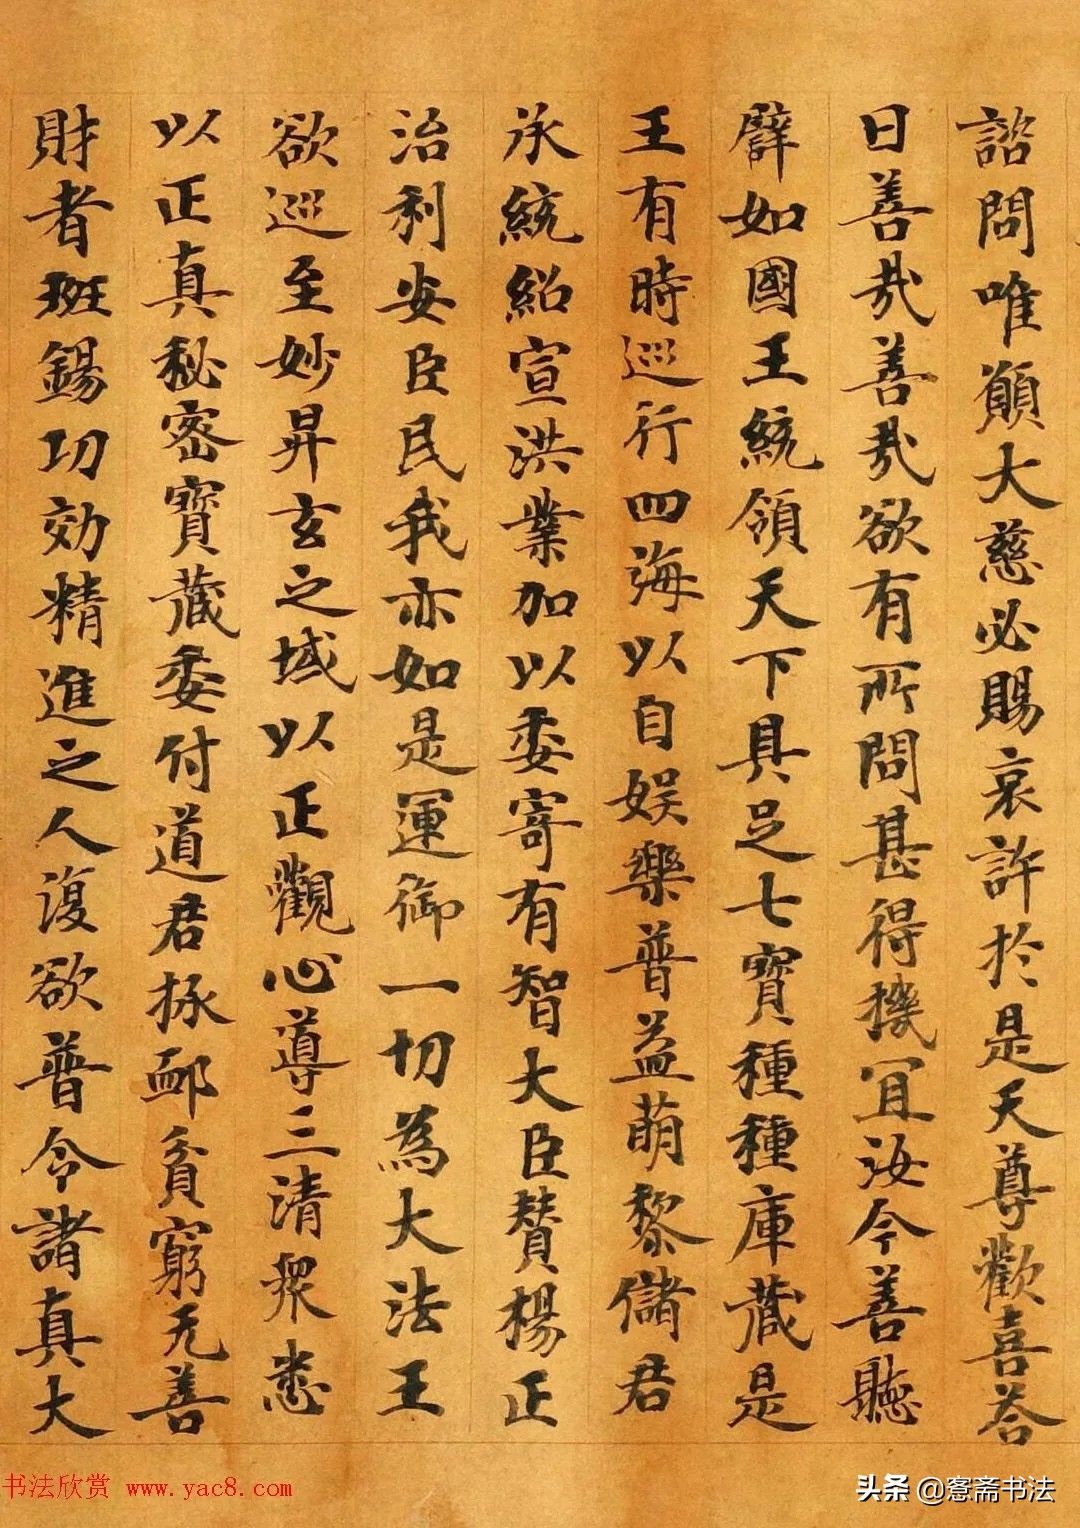 諮問唯願大慈必賜哀許於是天尊歡喜荅
曰善哉善哉欲有所問甚得機冝汝今善聽
譬如國王王統領天下具足七寶種種庫藏是
王有時巡行四海以自娱樂普益萌黎儲君
承統紹宣洪業加以委寄有智大臣賛楊正
治利安臣民我亦如是運御一切為大法王
欲巡至妙昇玄之域以正觀心導三清衆悉
以正真秘密寶藏委付道君拯䘏貧窮无善
財者班錫功効精進之人復欲普令諸真大
书法欣赏 www.yac8.com
头条 @窓斋书法